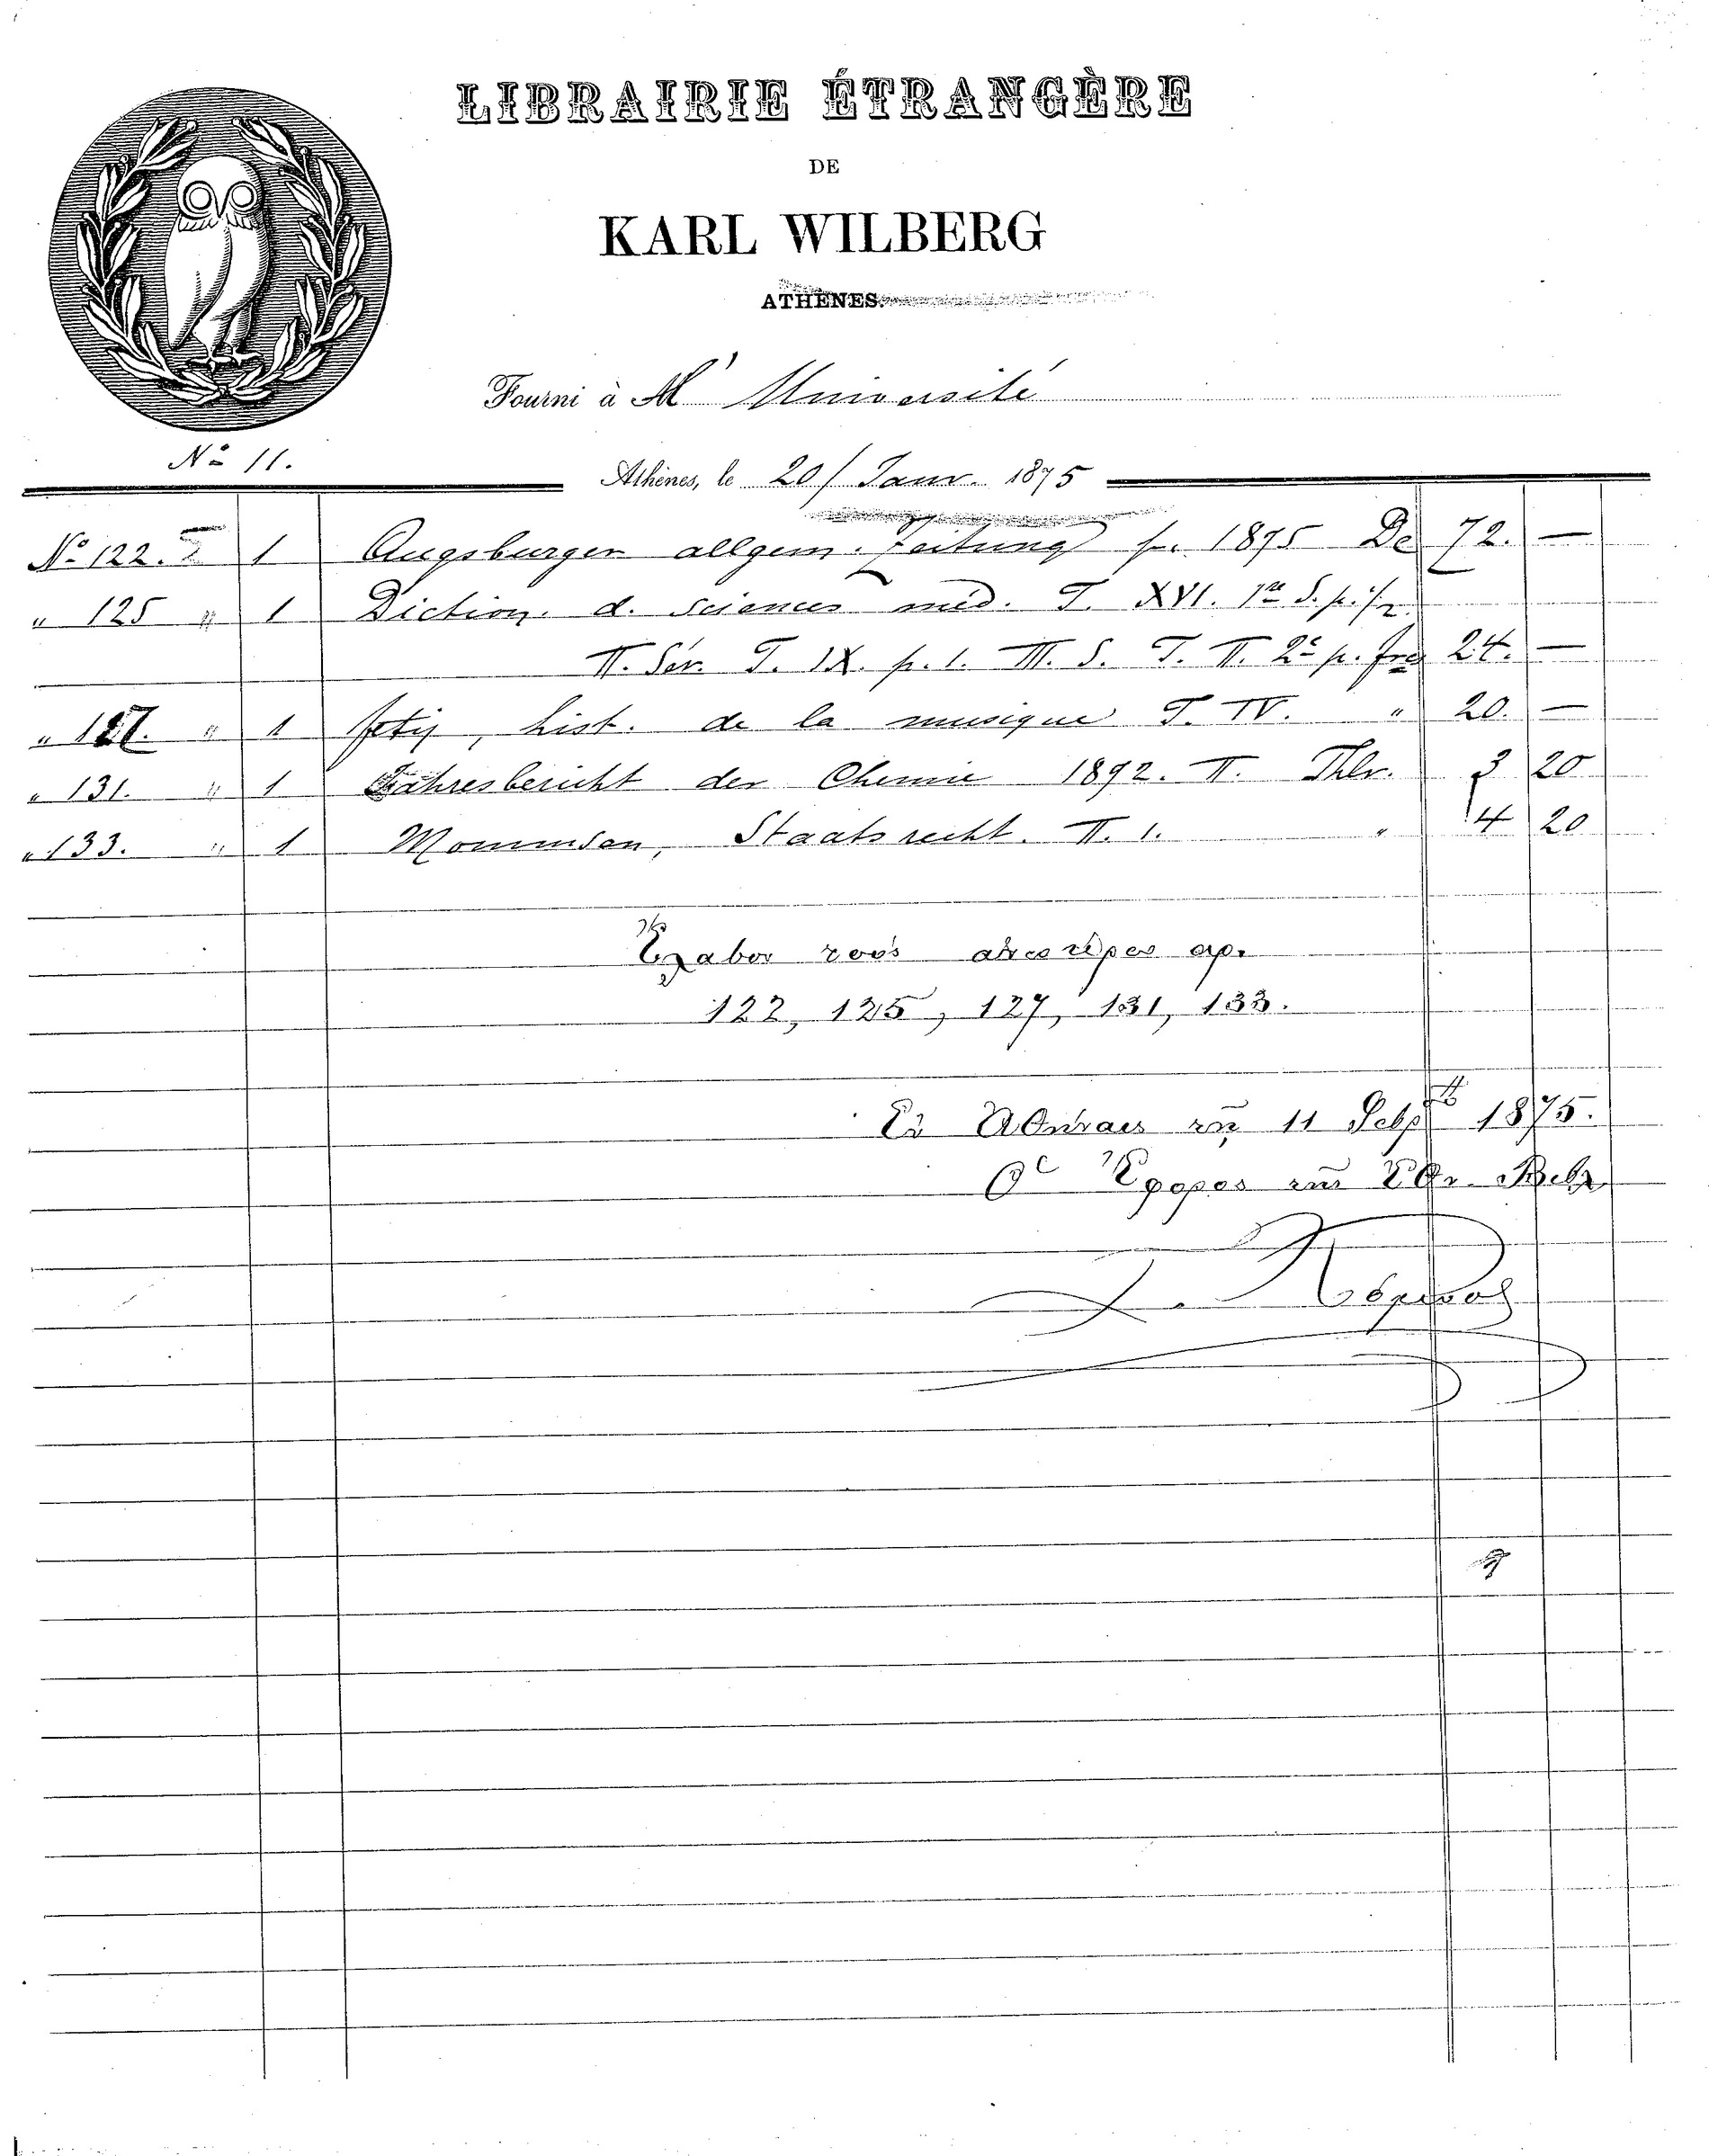 LIBRAIRIE ÉTRANGÈRE
DE
KARL WILBERG
ATHÈNES.
Fourni à M' Université
Nº 11.
Athènes, le 20/ Janv. 1875
Nº 122. 1 Augsburger allgem. Zeitung p. 1875 De 72. —
" 125 " 1 Diction. d. sciences méd. T. XVI. 1re S. p. 1/2.
II. Sér. T. IX. p. 1. III. S. T. II. 2e p. frcs 24. —
" 127. " 1 fetis, hist. de la musique T. IV. " 20. —
" 131. " 1 Jahresbericht der Chemie 1892. II. Thlr. 3 20
" 133. " 1 Mommsen, Staatsrecht. II. 1. " 4 20
Ἔλαβον τοὺς ἀνωτέρω ἀρ.
122, 125, 127, 131, 133.
Ἐν Ἀθήναις τῇ 11 Φεβρ 1875.
Ὁ Ἔφορος τῆς Ἐθν. Βιβλ